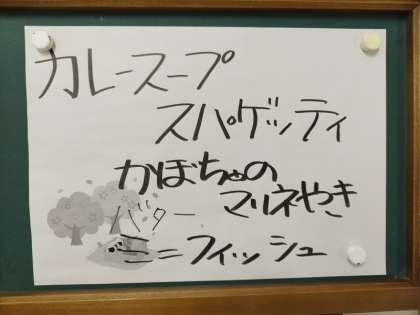 カレースープ
スパゲッティ
かぼちゃの
マリネやき
バター
フィッシュ